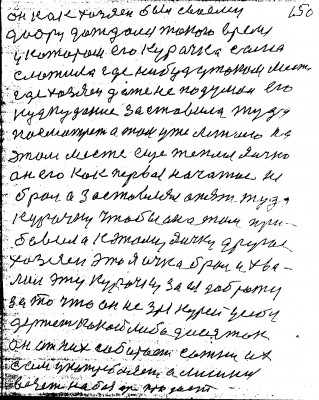 150
он как хозяен был своему
двору дождался такого время
укотором его курочка сама
сложила где нибудь утаком месте
где хозяен даже не подумал его
кудкудание заставила туда
посмотрет а там уже лежало на
этом месте еще теплое яичко
он его как первое начатое не
брал а заставлял опят туда
курочку чтобы она там при-
бавила кэтому яичку другое
хозяен это яичка брал и хва-
лил эту курочку за ея доброту
за то что он не зря курей усебя
держит какой либо десяток
он от них собирает сотни их
сам употребляет а лишни
везет на базар продает